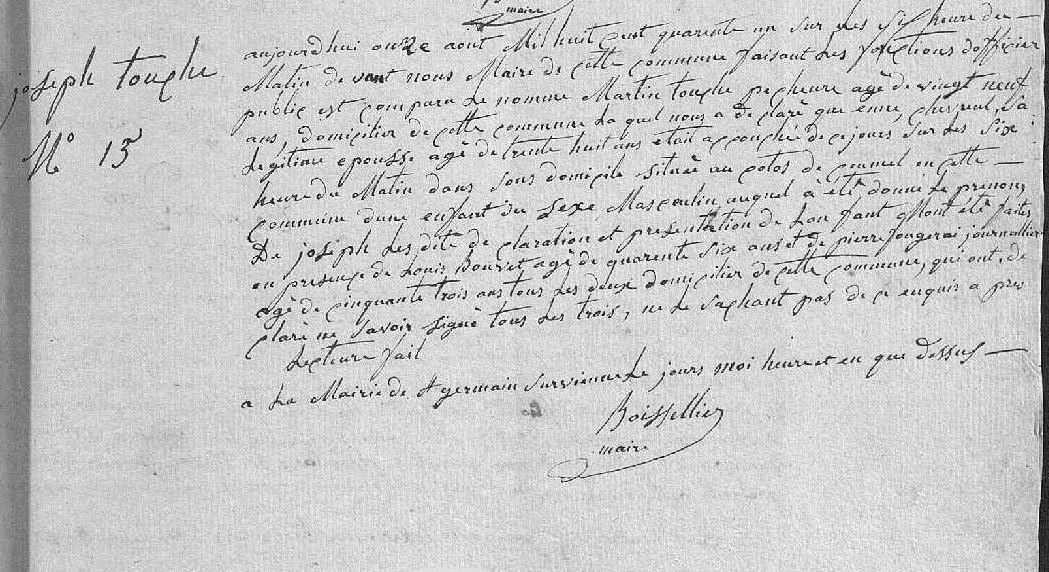 maire
joseph touche
N° 15
aujourdhui onze aout Mil huit cent quarente un sur les six heure du
Matin devant nous Maire de cette commune faisant les fonctions dofficier
public est comparu le nomme Martin touche pecheure agé de vingt neuf
ans, domicilier de cette commune laquel nous a declaré que
Legitime epousse agé de trente huit ans etait accouchée de ce jours sur les six
heure du Matin dans sons domicile située au cotos de en cette
commune dune enfant du sexe Masculin, auquel à été donné le prenons
De joseph Les dite declaration et presentation de Lanfant Mont été faites
en presence de Louis Bouvet agé de quarente six ans et de pierre fougerai journallier
agé de cinquante trois ans tous les deux domicilier de cette commune, qui ont, de
claré ne savoir signé tous les trois, ne le sachant pas de ce enquis a pres
Lecteure fait
a La Mairie de St germain sur vienne Le jours moi heure et en que dessus
Boissellier
maire